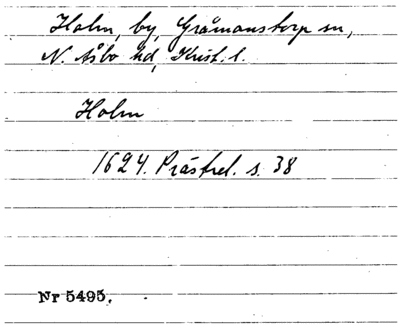 Holm, by, Gråmanstorp sn,
N. Åsbo hd, Krist. l.
Holm
1624. Prästrel. s. 38
Nr 5495.